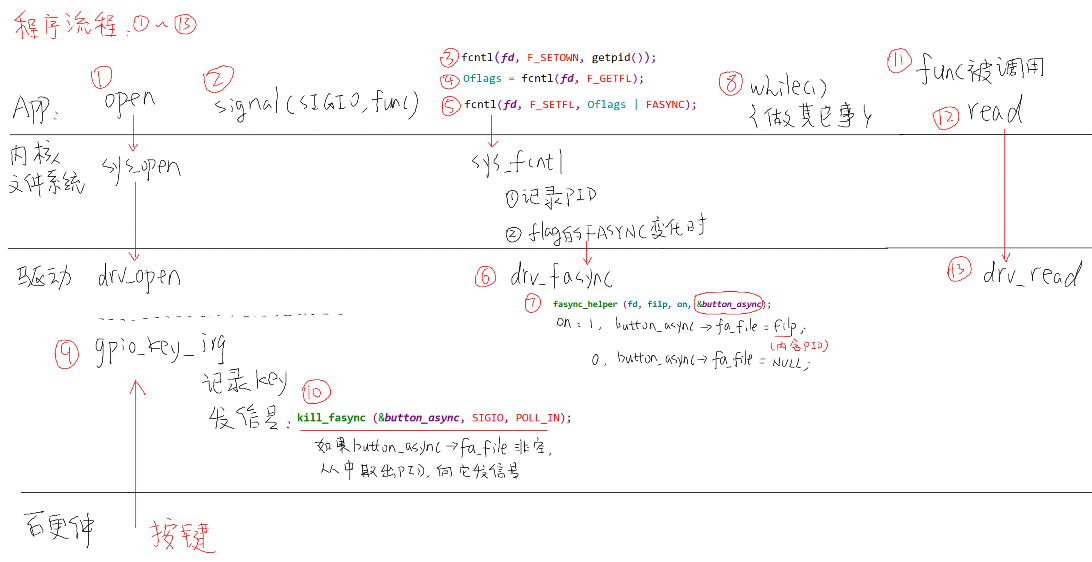 程序流程:①~⑬
App:
① open
② signal(SIGIO, func)
③ fcntl(fd, F_SETOWN, getpid());
④ Oflags = fcntl(fd, F_GETFL);
⑤ fcntl(fd, F_SETFL, Oflags | FASYNC);
⑧ while()
{做其它事}
⑪ func被调用
⑫ read
内核
文件系统
sys_open
sys_fcntl
①记录PID
② flag的FASYNC变化时
驱动
drv_open
⑥ drv_fasync
⑦ fasync_helper (fd, filp, on, &button_async);
on:1, button_async→fa_file=filp;
(内含PID)
0, button_async→fa_file=NULL;
⑬ drv_read
⑨ gpio_key_irq
记录key
发信号:
⑩ kill_fasync (&button_async, SIGIO, POLL_IN);
如果button_async→fa_file非空,
从中取出PID,向它发信号
硬件
按键